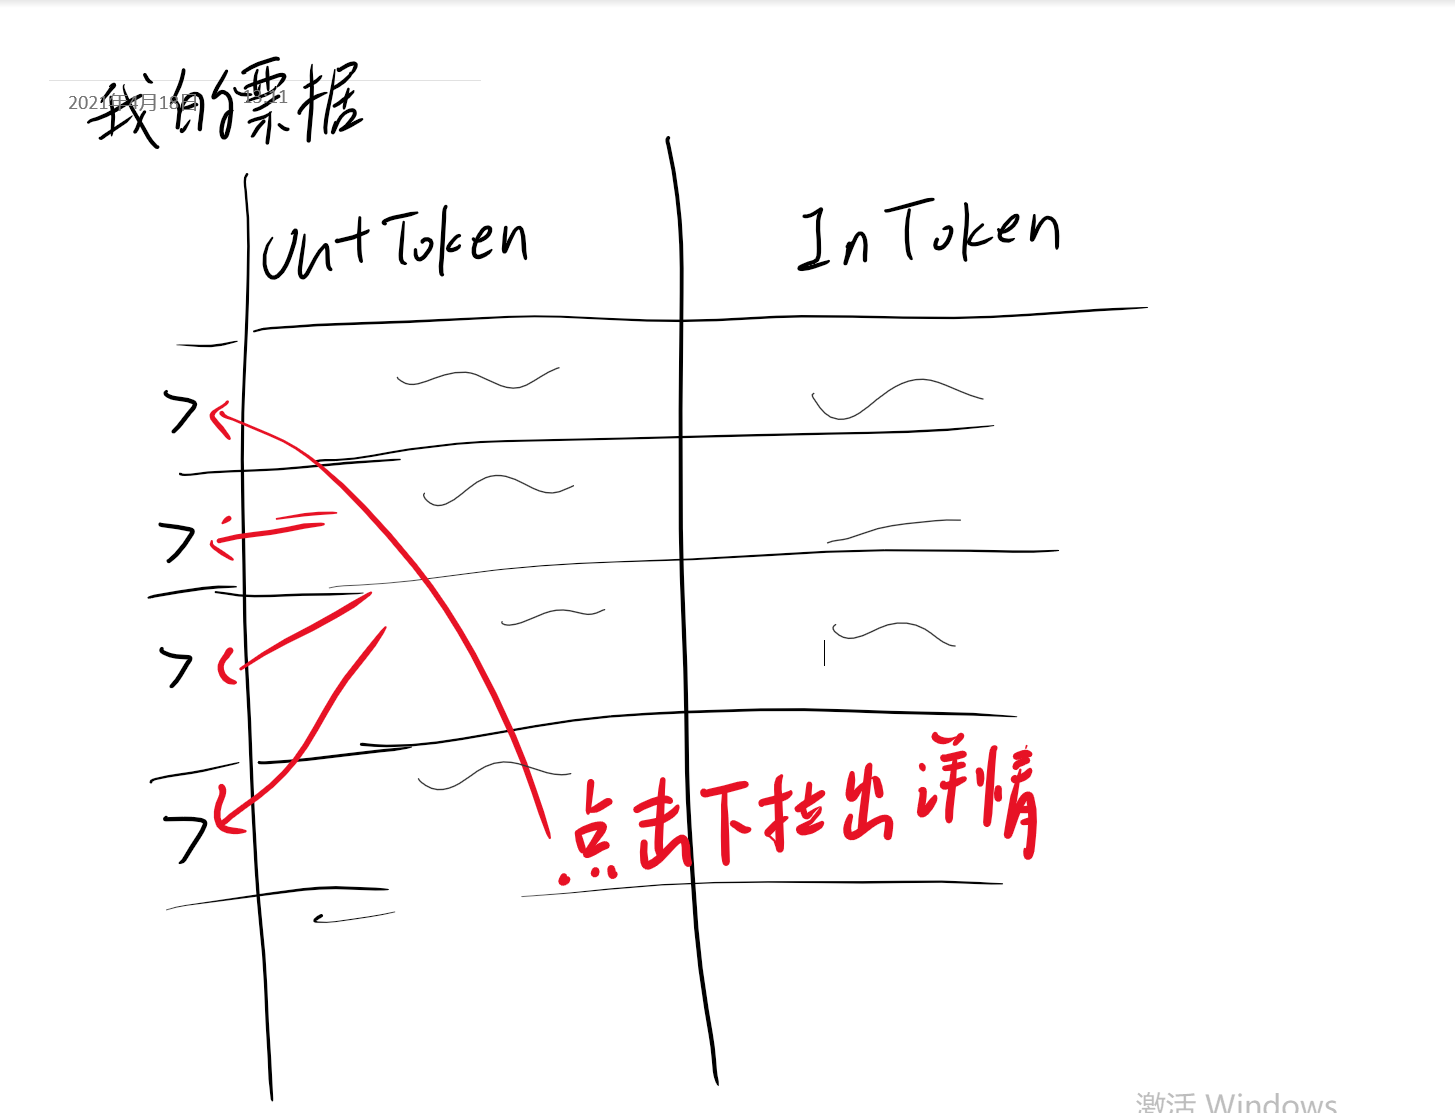 我的票据
2021年4月18日 13:11
UntToken
In Token
>
>
>
>
点击下拉出详情
激活 Windows